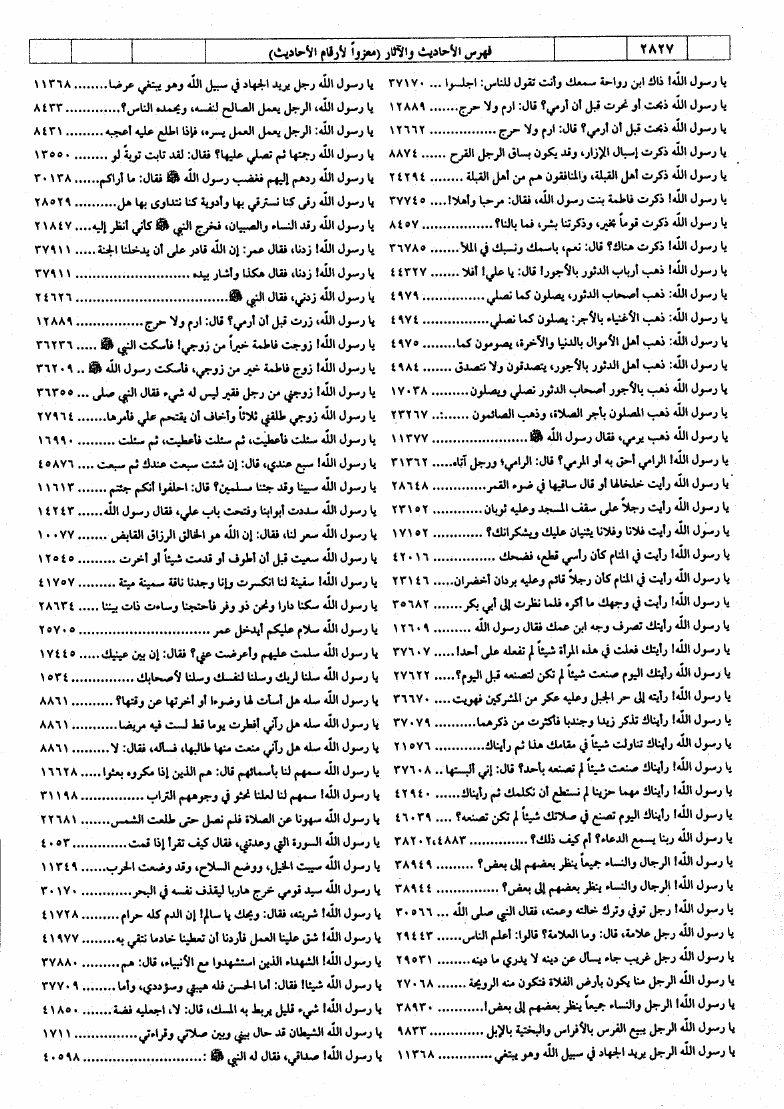 ٢٨٢٧
فهرس الأحاديث والآثار (معزواً لأرقام الأحاديث)
يا رسول الله! ذاك ابن رواحة سمعك وأنت تقول للناس: اجلسوا ... ٣٧١٧٠
يا رسول الله ذبحت أو نحرت قبل أن أرمي؟ قال: ارم ولا حرج....... ١٢٨٨٩
يا رسول الله ذبحت قبل أن أرمي؟ قال: ارم ولا حرج ............... ١٢٦٦٢
يا رسول الله ذكرت إسبال الإزار، وقد يكون بساق الرجل القرح ...... ٨٨٧٤
يا رسول الله ذكرت أهل القبلة، والمنافقون هم من أهل القبلة ....... ٢٤٢٩٤
يا رسول الله! ذكرت فاطمة بنت رسول الله، فقال: مرحبا وأهلا!.... ٣٧٧٤٥
يا رسول الله ذكرت قوماً بخير، وذكرتنا بشر، فما بالنا؟............... ٨٤٥٧
يا رسول الله! ذكرت هناك؟ قال: نعم، باسمك ونسبك في الملأ...... ٣٦٧٨٥
يا رسول الله! ذهب أرباب الدثور بالأجور! قال: يا علي! أفلا ...... ٤٤٣٢٧
يا رسول الله: ذهب أصحاب الدثور، يصلون كما نصلي ............... ٤٩٧٩
يا رسول الله: ذهب الأغنياء بالأجر: يصلون كما نصلي............... ٤٩٧٤
يا رسول الله: ذهب أهل الأموال بالدنيا والآخرة، يصومون كما....... ٤٩٧٥
يا رسول الله: ذهب أهل الدثور بالأجور، يتصدقون ولا نتصدق ....... ٤٩٨٤
يا رسول الله: ذهب بالأجور أصحاب الدثور نصلي ويصلون.......... ١٧٠٣٨
يا رسول الله ذهب المصلون بأجر الصلاة، وذهب الصائمون ......:.. ٢٣٢٦٧
يا رسول الله ذهب يرمي، فقال رسول الله ﷺ ..................... ١١٣٧٧
يا رسول الله! الرامي أحق به أو المرمي؟ قال: الرامي؛ ورجل آتاه..... ٣١٣٦٢
يا رسول الله رأيت خلخالها أو قال ساقيها في ضوء القمر............ ٢٨٦٤٨
يا رسول الله رأيت رجلاً على سقف المسجد وعليه ثوبان ........... ٢٣١٥٢
يا رسول الله رأيت فلانا وفلانا يثنيان عليك ويشكرانك؟ ............ ١٧١٥٢
يا رسول الله! رأيت في المنام كأن رأسي قطع، فضحك............... ٤٢٠١٦
يا رسول الله رأيت في المنام كأن رجلاً قائم وعليه بردان أخضران..... ٢٣١٤٦
يا رسول الله! رأيت في وجهك ما أكره فلما نظرت إلى أبي بكر ...... ٣٥٦٨٢
يا رسول الله رأيتك تصرف وجه ابن عمك فقال رسول الله .......... ١٢٦٠٩
يا رسول الله! رأيتك فعلت في هذه المرأة شيئاً لم تفعله على أحد!.... ٣٧٦٠٧
يا رسول الله رأيتك اليوم صنعت شيئاً لم تكن لتصنعه قبل اليوم؟..... ٢٧٦٢٢
يا رسول الله! رأيته إلى حر الجبل وعليه عكر من المشركين فهويت .... ٣٦٦٧٠
يا رسول الله! رأيناك تذكر زيدا وجندبا فأكثرت من ذكرهما.......... ٣٧٠٧٩
يا رسول الله رأيناك تناولت شيئاً في مقامك هذا ثم رأيناك........... ٢١٥٧٦
يا رسول الله! رأيناك صنعت شيئاً لم تصنعه بأحد؟ قال: إني ألبستها .. ٣٧٦٠٨
يا رسول الله! رأيناك مهما حزينا لم نستطع أن نكلمك ثم رأيناك...... ٤٢٩٤٠
يا رسول الله! رأيناك اليوم تصنع في صلاتك شيئاً لم تكن تصنعه؟ .... ٤٦٠٣٩
يا رسول الله ربنا يسمع الدعاء؟ أم كيف ذلك؟ ............. ٣٨٢٠٢،٤٨٨٣
يا رسول الله! الرجال والنساء جميعاً ينظر بعضهم إلى بعض؟ ........ ٣٨٩٤٩
يا رسول الله! الرجال والنساء ينظر بعضهم إلى بعض؟.............. ٣٨٩٤٤
يا رسول الله! رجل توفي وترك خالته وعمته، فقال النبي صلى الله ... ٣٠٥٦٦
يا رسول الله رجل علامة، قال: وما العلامة؟ قالوا: أعلم الناس...... ٢٩٤٤٣
يا رسول الله رجل غريب جاء يسأل عن دينه لا يدري ما دينه....... ٢٩٥٣١
يا رسول الله الرجل منا يكون بأرض الفلاة فتكون منه الرويحة ....... ٢٧٠٦٨
يا رسول الله! الرجل والنساء جميعاً ينظر بعضهم إلى بعض!........... ٣٨٩٣٠
يا رسول الله الرجل يبيع الفرس بالأفراس والبختية بالإبل............ ٩٨٣٣
يا رسول الله الرجل يريد الجهاد في سبيل الله وهو يبتغي ............ ١١٣٦٨
يا رسول الله رجل يريد الجهاد في سبيل الله وهو يبتغي عرضا........ ١١٣٦٨
يا رسول الله، الرجل يعمل الصالح لنفسه، ويحمده الناس؟............. ٨٤٣٣
يا رسول الله: الرجل يعمل العمل يسره، فإذا اطلع عليه أعجبه ........ ٨٤٣١
يا رسول الله رجمتها ثم تصلي عليها؟ فقال: لقد تابت توبة لو ........ ١٣٥٥٠
يا رسول الله ردهم إليهم فغضب رسول الله ﷺ فقال: ما أراكم..... ٣٠١٣٨
يا رسول الله رقى كنا نسترقي بها وأدوية كنا نتداوى بها هل......... ٢٨٥٢٩
يا رسول الله رقد النساء والصبيان، فخرج النبي ﷺ كأني أنظر إليه.... ٢١٨٤٧
يا رسول الله! زدنا، فقال عمر: إن الله قادر على أن يدخلنا الجنة..... ٣٧٩١١
يا رسول الله! زدنا، فقال هكذا وأشار بيده ....................... ٣٧٩١١
يا رسول الله زدني، فقال النبي ﷺ............................... ٢٤٦٢٦
يا رسول الله، زرت قبل أن أرمي؟ قال: ارم ولا حرج............... ١٢٨٨٩
يا رسول الله! زوجت فاطمة خيراً من زوجي! فأسكت النبي ﷺ ..... ٣٦٢٣٦
يا رسول الله! زوج فاطمة خير من زوجي، فأسكت رسول الله ﷺ .. ٣٦٢٠٩
يا رسول الله! زوجني من رجل فقير ليس له شيء فقال النبي صلى ... ٣٦٣٥٥
يا رسول الله زوجي طلقني ثلاثاً وأخاف أن يقتحم علي فأمرها....... ٢٧٩٦٤
يا رسول الله سئلت فأعطيت، ثم سئلت فأعطيت، ثم سئلت ......... ١٦٩٩٠
يا رسول الله! سبع عندي، قال: إن شئت سبعت عندك ثم سبعت .... ٤٥٨٧٦
يا رسول الله سبينا وقد جئنا مسلمين؟ قال: احلفوا أنكم جئتم ....... ١١٦١٣
يا رسول الله سددت أبوابنا وفتحت باب علي، فقال رسول الله...... ١٤٢٤٣
يا رسول الله سعر لنا، فقال: إن الله هو الخالق الرزاق القابض........ ١٠٠٧٧
يا رسول الله سعيت قبل أن أطوف أو قدمت شيئاً أو أخرت ........ ١٢٥٤٥
يا رسول الله! سفينة لنا انكسرت وإنا وجدنا ناقة سمينة ميتة ......... ٤١٧٥٧
يا رسول الله سكنا دارا ونحن ذو وفر فأحتجنا وساءت ذات بيننا ..... ٢٨٦٣٤
يا رسول الله سلام عليكم أيدخل عمر ............................ ٢٥٧٠٥
يا رسول الله سلمت عليهم وأعرضت عني؟ فقال: إن بين عينيك..... ١٧٤٤٥
يا رسول الله سلنا لربك وسلنا لنفسك وسلنا لأصحابك.............. ١٥٣٤
يا رسول الله سله هل أسأت لها وضوءا أو أخرتها عن وقتها؟......... ٨٨٦١
يا رسول الله سله هل رآني أفطرت يوما قط لست فيه مريضا......... ٨٨٦١
يا رسول الله سله هل رآني منعت منها طالبها، فسأله، فقال: لا....... ٨٨٦١
يا رسول الله سمهم لنا بأسمائهم قال: هم الذين إذا مكروه بعثوا ..... ١٦٦٢٨
يا رسول الله! سمهم لنا لعلنا نحثو في وجوههم التراب ............... ٣١١٩٨
يا رسول الله سهونا عن الصلاة فلم نصل حتى طلعت الشمس ....... ٢٢٦٨١
يا رسول الله السورة التي وعدتني، فقال كيف تقرأ إذا قمت........... ٤٠٥٣
يا رسول الله سيبت الخيل، ووضع السلاح، وقد وضعت الحرب...... ١١٣٤٩
يا رسول الله سيد قومي خرج هاربا ليقذف نفسه في البحر .......... ٣٠١٧٠
يا رسول الله! شربته، فقال: ويحك يا سالم! إن الدم كله حرام........ ٤١٧٢٨
يا رسول الله! شق علينا العمل فأردنا أن تعطينا خادما نتقي به ...... ٤١٩٧٧
يا رسول الله! الشهداء الذين استشهدوا مع الأنبياء، قال: هم......... ٣٧٨٨٠
يا رسول الله شيئا! فقال: أما الحسن فله هيبتي وسؤددي، وأما....... ٣٧٧٠٩
يا رسول الله! شيء قليل يربط به المسك، قال: لا، اجعليه فضة...... ٤١٨٥٠
يا رسول الله الشيطان قد حال بيني وبين صلاتي وقراءتي............. ١٧١١
يا رسول الله! صداقي، فقال له النبي ﷺ :........................ ٤٠٥٩٨